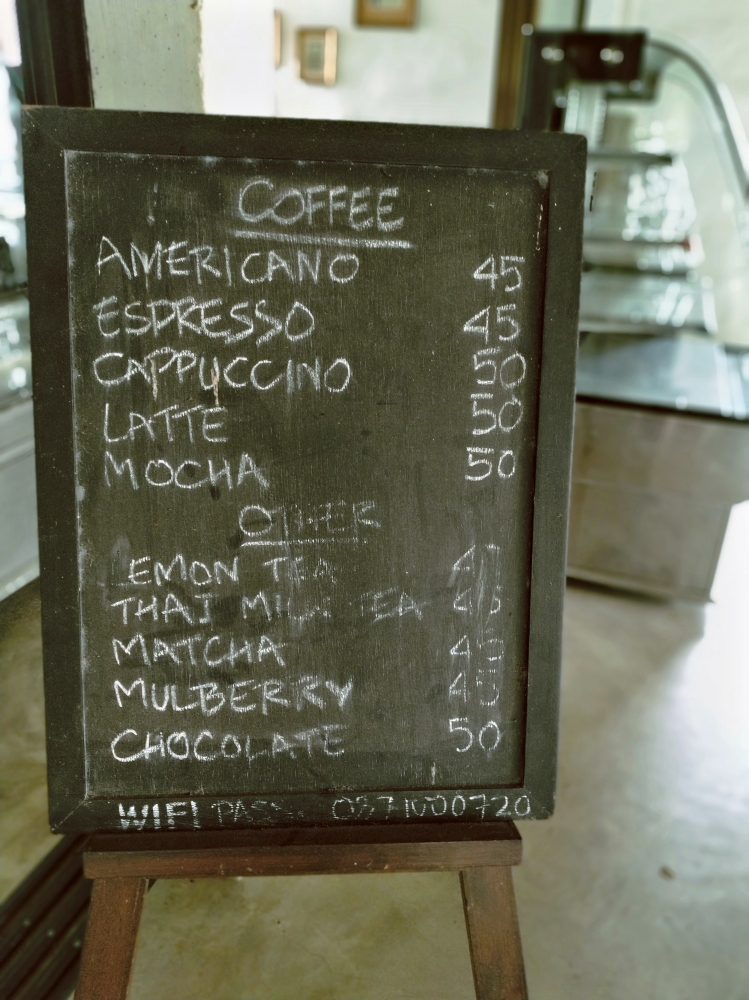 COFFEE
AMERICANO 45
ESPRESSO 45
CAPPUCCINO 50
LATTE 50
MOCHA 50
OTHER
LEMON TEA
THAI MILK TEA 45
MATCHA 45
MULBERRY 45
CHOCOLATE 50
WIFI PASS.